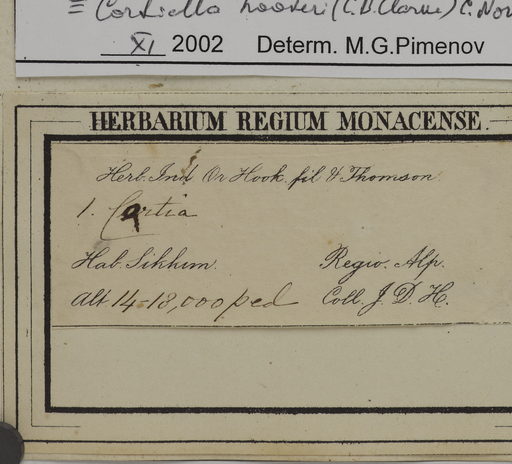 ≡ Cortiella hookeri (C.B. Clarke) C. Nor
XI 2002 Determ. M.G.Pimenov
HERBARIUM REGIUM MONACENSE.
Herb. Ind Or Hook. fil & Thomson
1. Cortia
Hab. Sikkim. Regio. Alp.
Alt 14-18,000 ped Coll. J. D. H.